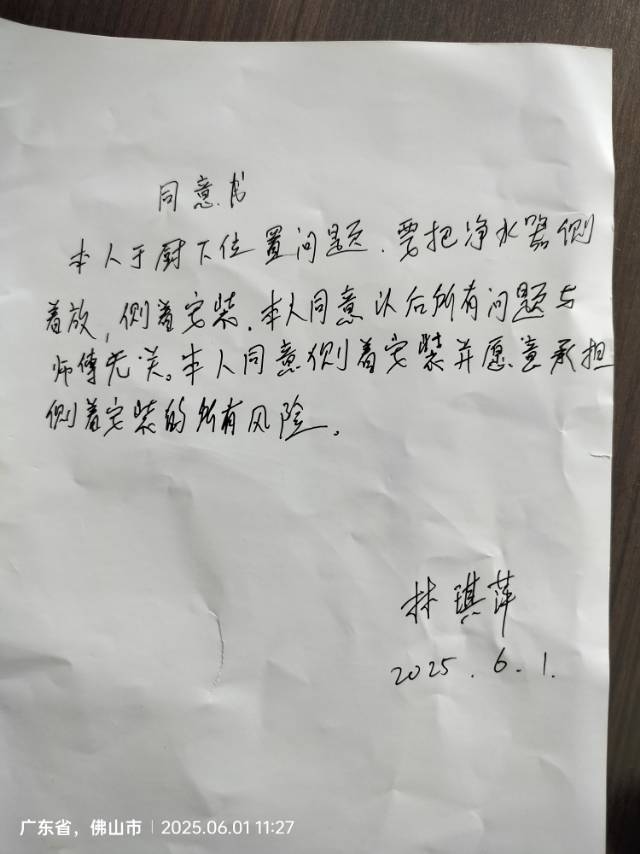 同意书
本人于厨下位置问题.要把净水器侧
着放,侧着安装.本人同意以后所有问题与
师傅无关。本人同意侧着安装并愿意承担
侧着安装的所有风险。
林琪萍
2025.6.1.
广东省，佛山市 | 2025.06.01 11:27